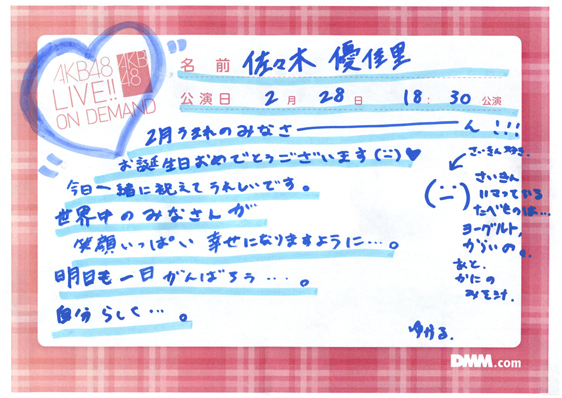 AKB48
LIVE!!
ON DEMAND
AKB
48
名 前 佐々木 優佳里
公演日 2月 28日 18:30 公演
2月うまれのみなさ――――ん!!!
お誕生日おめでとうございます(ニ)♥
今日一緒に祝えてうれしいです。
世界中のみなさんが
笑顔いっぱい 幸せになりますように…。
明日も一日がんばろう…。
自分らしく…。
さいきん好き。
(ニ)
さいきん
ハマってる
たべものは…
ヨーグルト,
からいの。
あと、
かにの
みそ汁。
ゆかる.
DMM.com